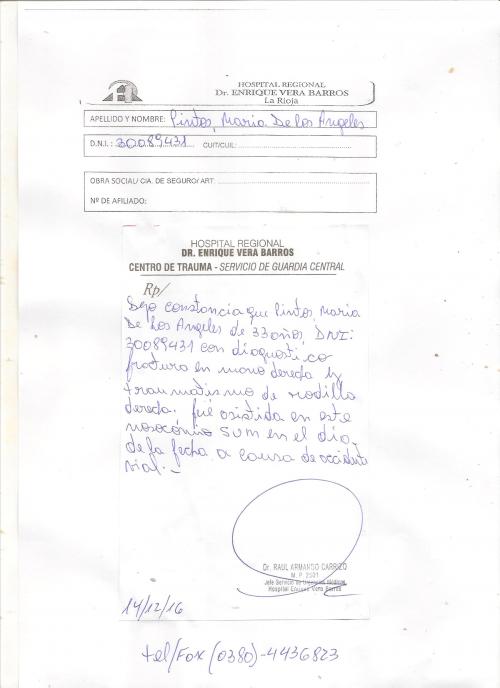 HOSPITAL REGIONAL
Dr. ENRIQUE VERA BARROS
La Rioja
APELLIDO Y NOMBRE: Pintos, Maria De Los Angeles
D.N.I.: 30089431 CUIT/CUIL:
OBRA SOCIAL/ CIA. DE SEGURO/ ART:
Nº DE AFILIADO:
HOSPITAL REGIONAL
DR. ENRIQUE VERA BARROS
CENTRO DE TRAUMA - SERVICIO DE GUARDIA CENTRAL
Rp/
Dejo constancia que Pintos, Maria
De Los Angeles de 33 años, DNI:
30089431 con diagnostico
fractura en mano derecha y
traumatismo de rodilla
derecha. fué asistida en este
nosocómio SUM en el día
de la fecha a causa de accidente
vial.-
Dr. RAUL ARMANDO CARRIZO
M.P. 2501
Jefe Servicio de Urgencias Médicas
Hospital Enrique Vera Barros
14/12/16
tel/Fax (0380)-4436823